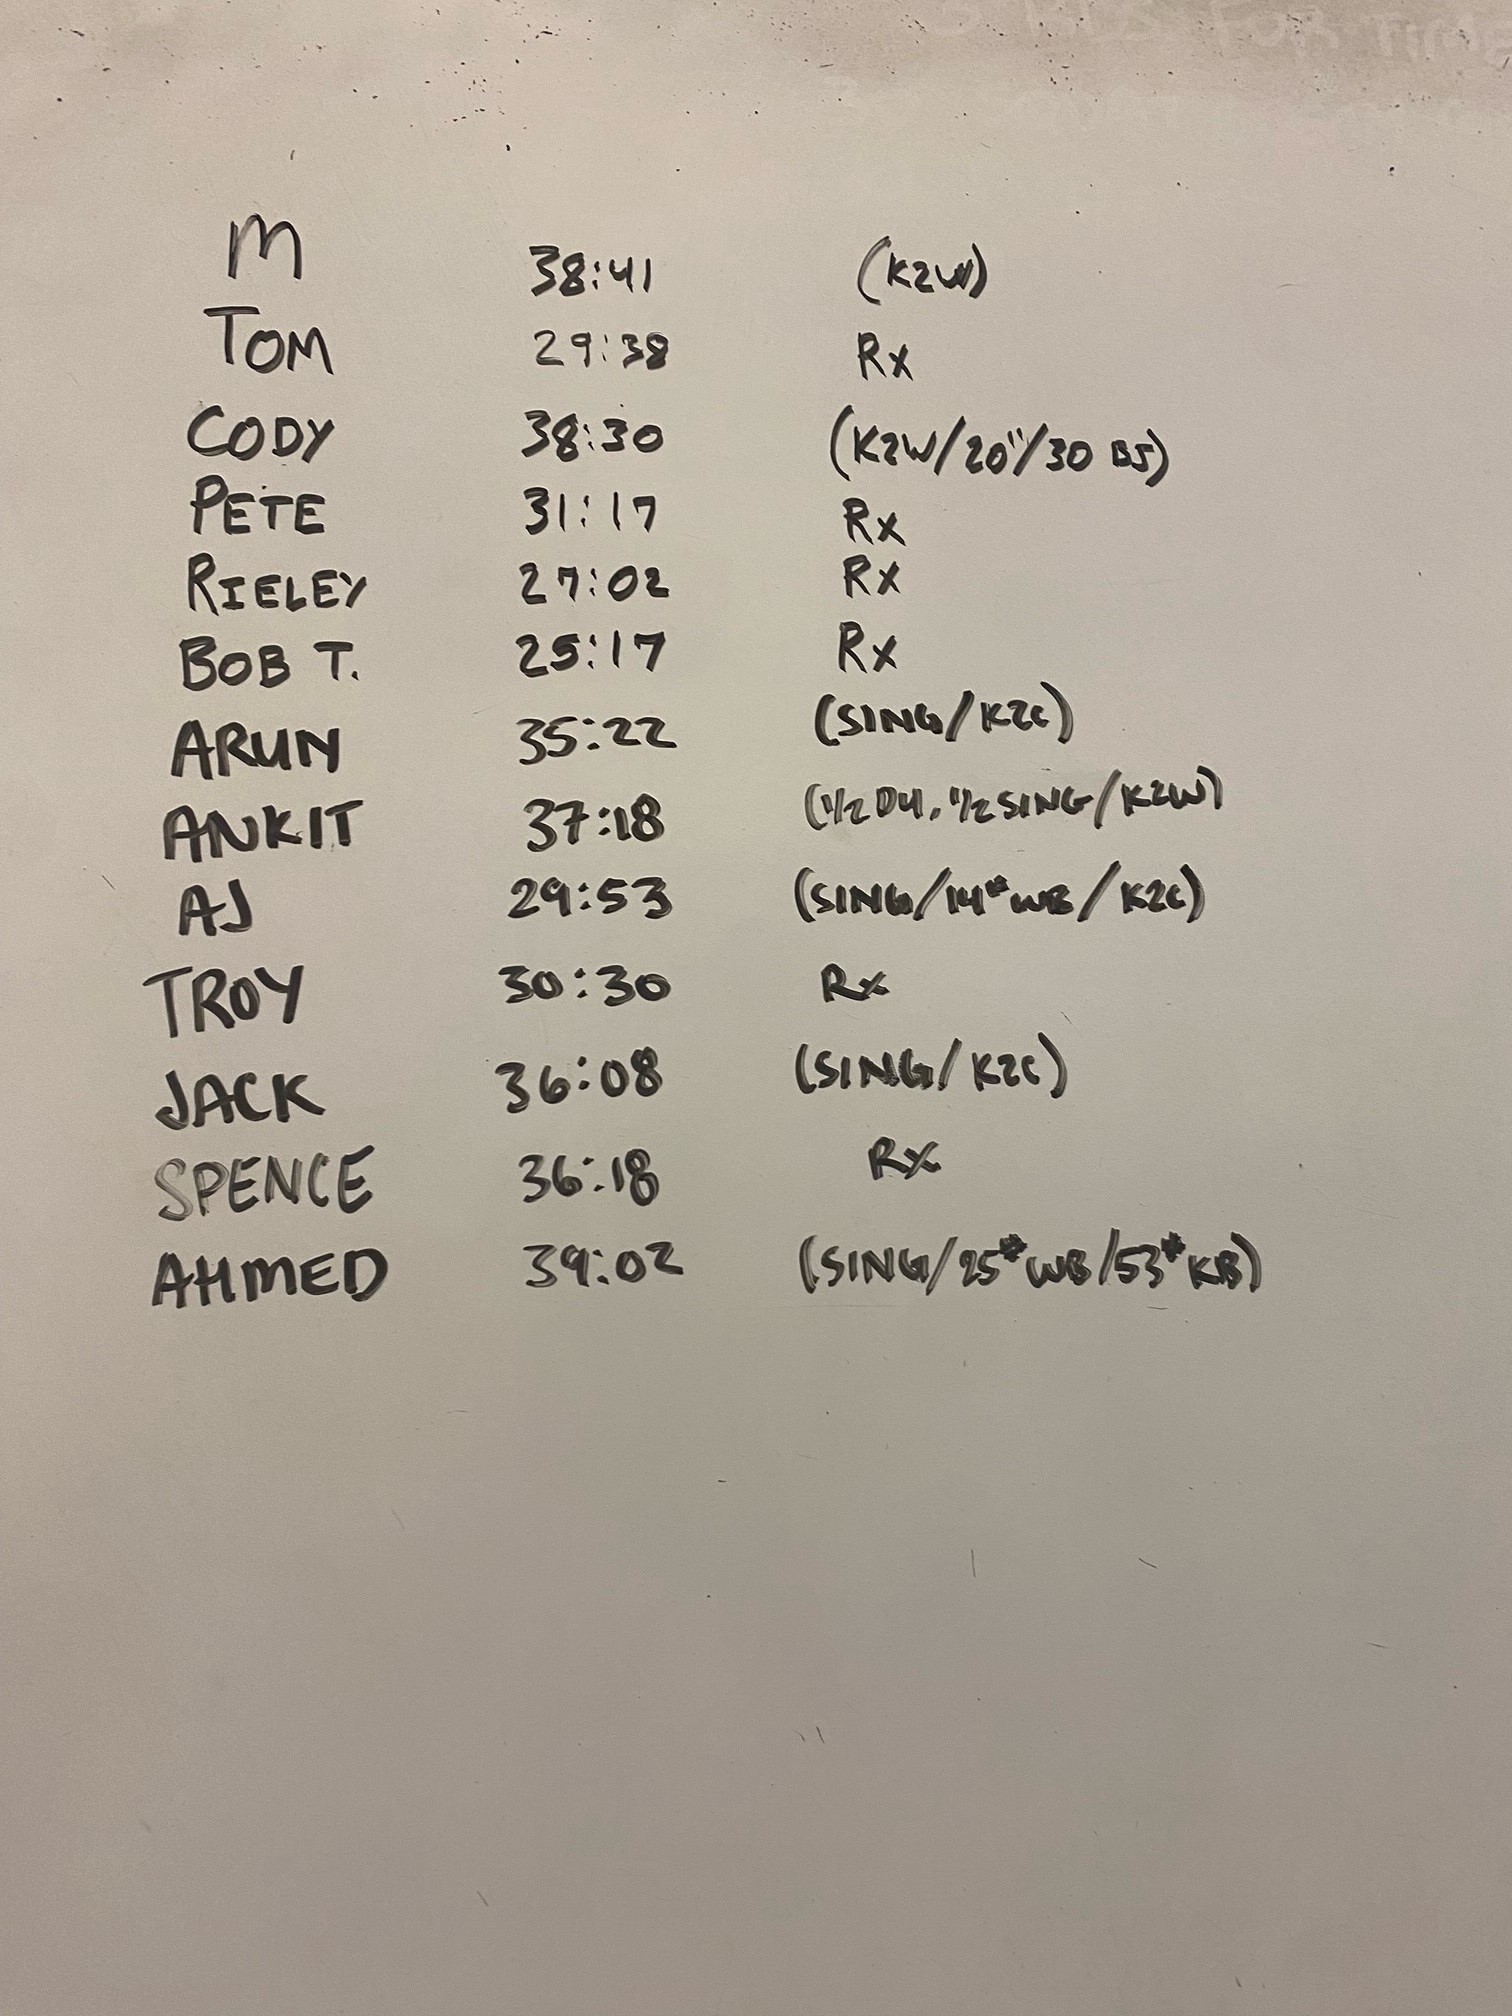 FOR TIME
M 38:41 (K2W)
TOM 29:38 Rx
CODY 38:30 (K2W/20"/30 BJ)
PETE 31:17 Rx
RIELEY 27:02 Rx
BOB T. 25:17 Rx
ARUN 35:22 (SING/K2C)
ANKIT 37:18 (1/2 DU, 1/2 SING/K2W)
AJ 29:53 (SING/14# WB/K2C)
TROY 30:30 Rx
JACK 36:08 (SING/K2C)
SPENCE 36:18 Rx
AHMED 39:02 (SING/25# WB/53# KB)